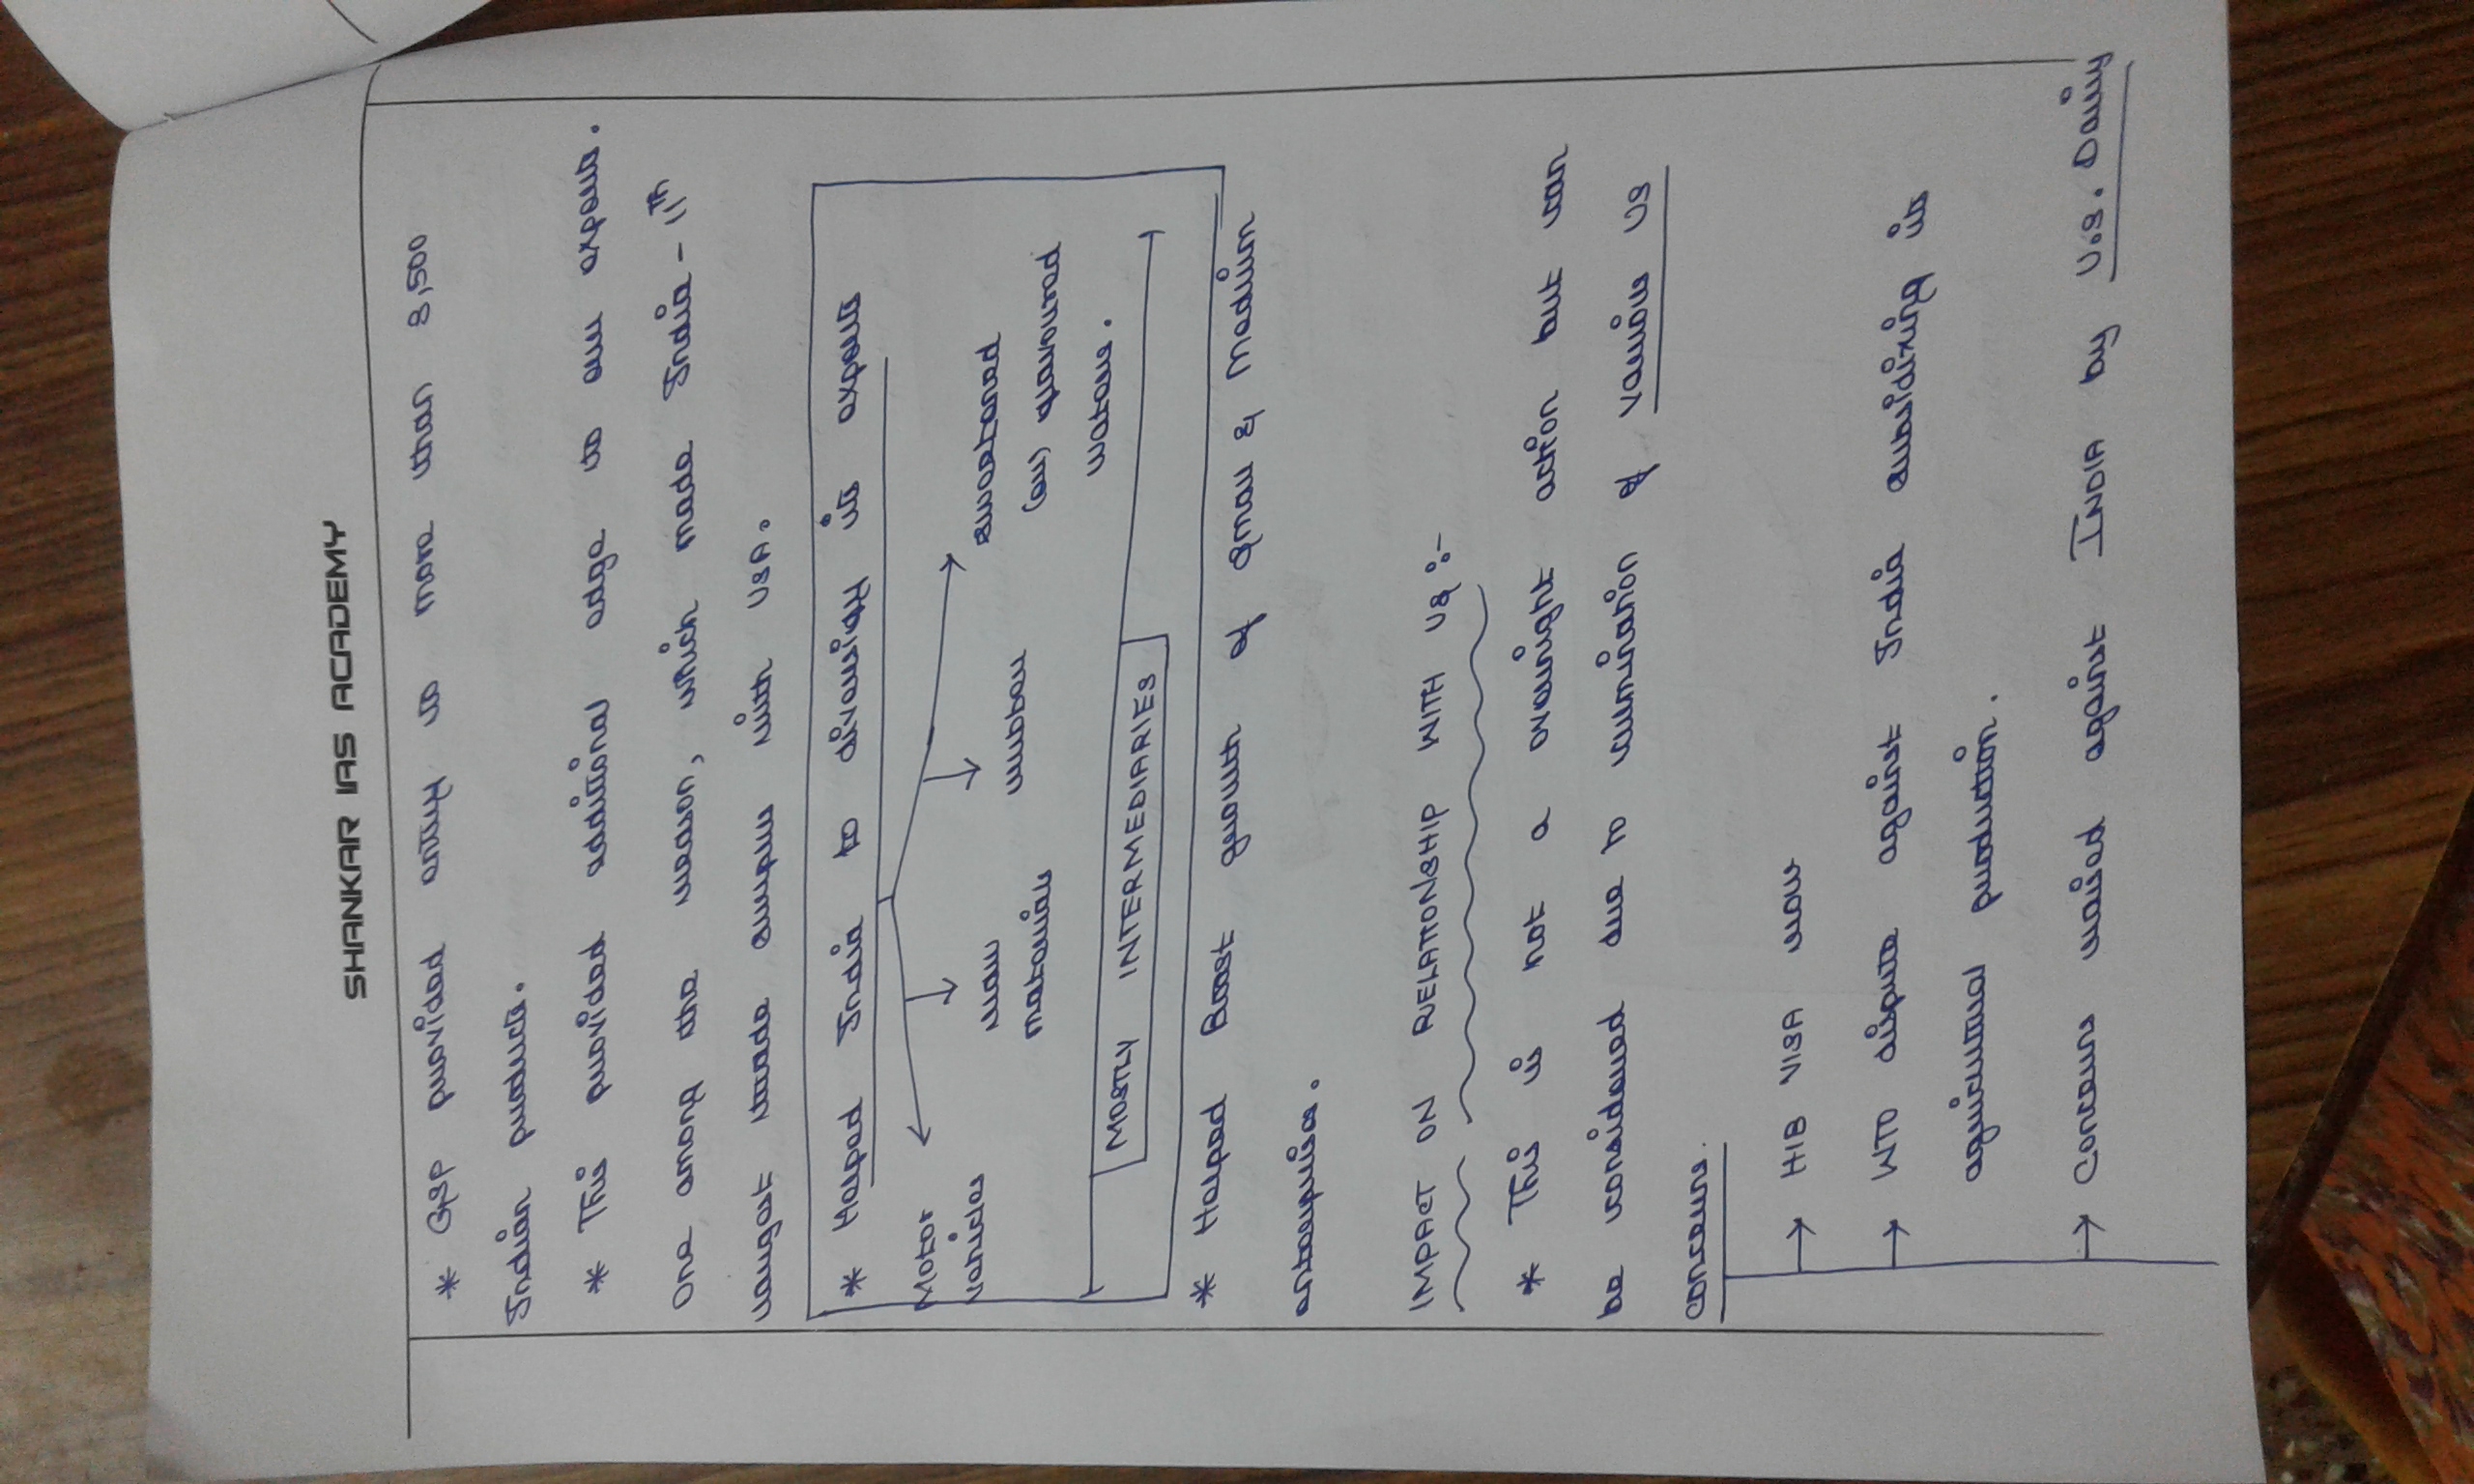 SHANKAR IAS ACADEMY
* GSP provided entry to more than 3,500
Indian products.
* This provided additional edge to our exports.
One among the reason, which made India - 11th
largest trade surplus with USA.
* Helped India to diversify its exports
Motor vehicles
raw materials
rubber
sweetened (or) flavoured waters.
MOSTLY INTERMEDIARIES
* Helped Boost growth of Small & Medium
enterprises.
IMPACT ON RELATIONSHIP WITH US :-
* This is not a overnight action but can
be considered due to culmination of various US
concerns.
→ H1B VISA row
→ WTO dispute against India subsidizing its
agricultural production.
→ Concerns raised against INDIA by U.S. Dairy